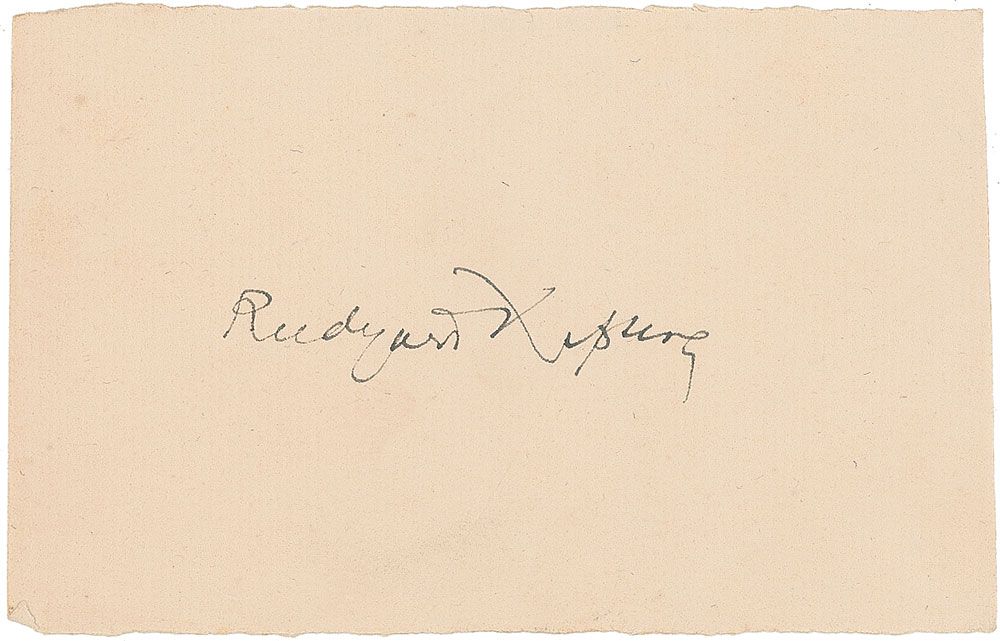 Rudyard Kipling